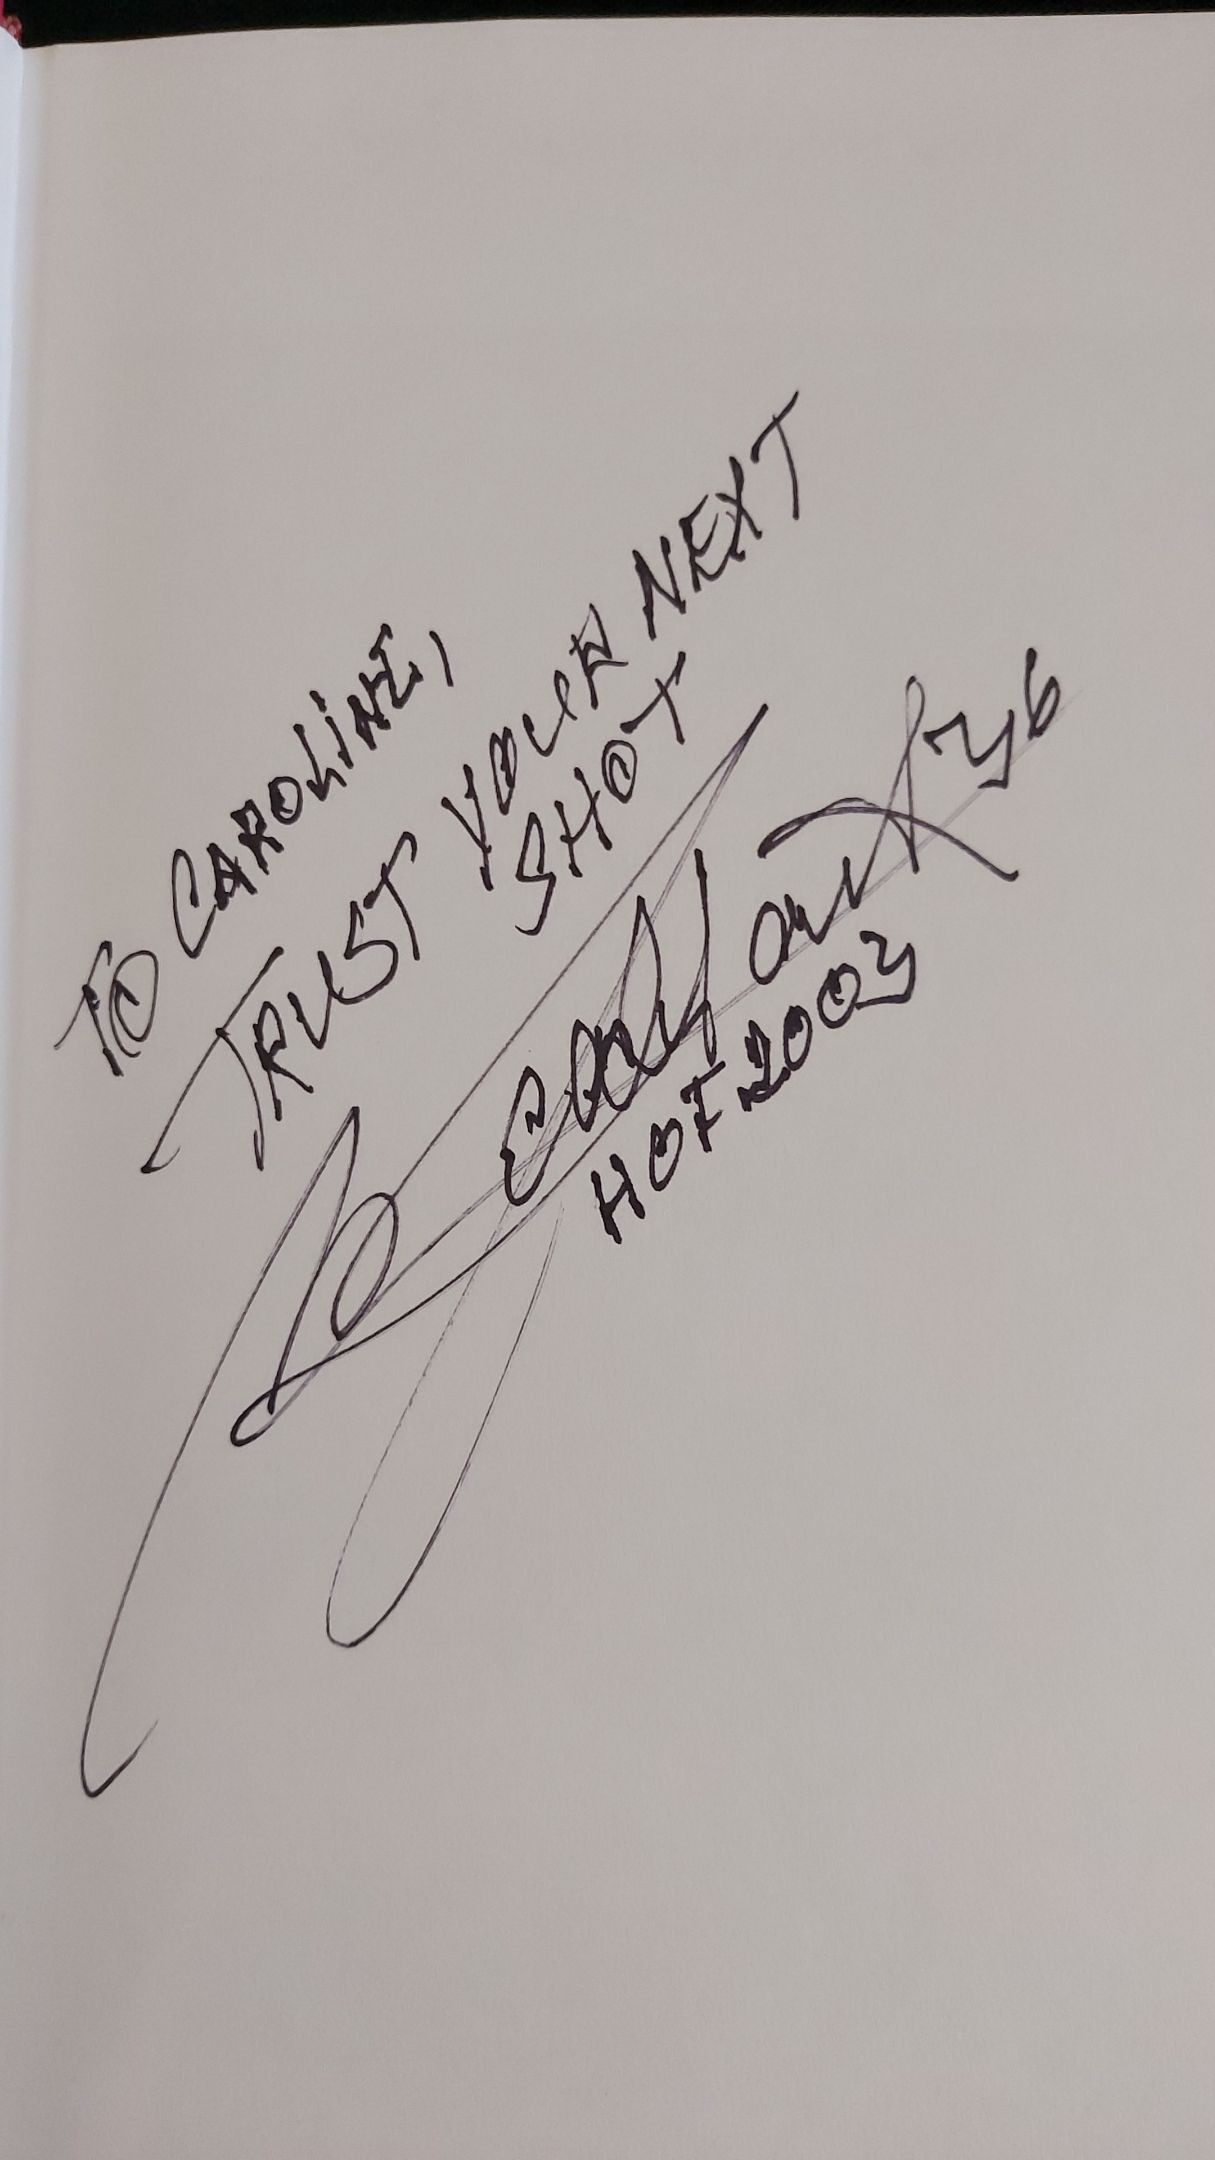 TO CAROLINE,
TRUST YOUR NEXT
SHOT
36
HOF 2003